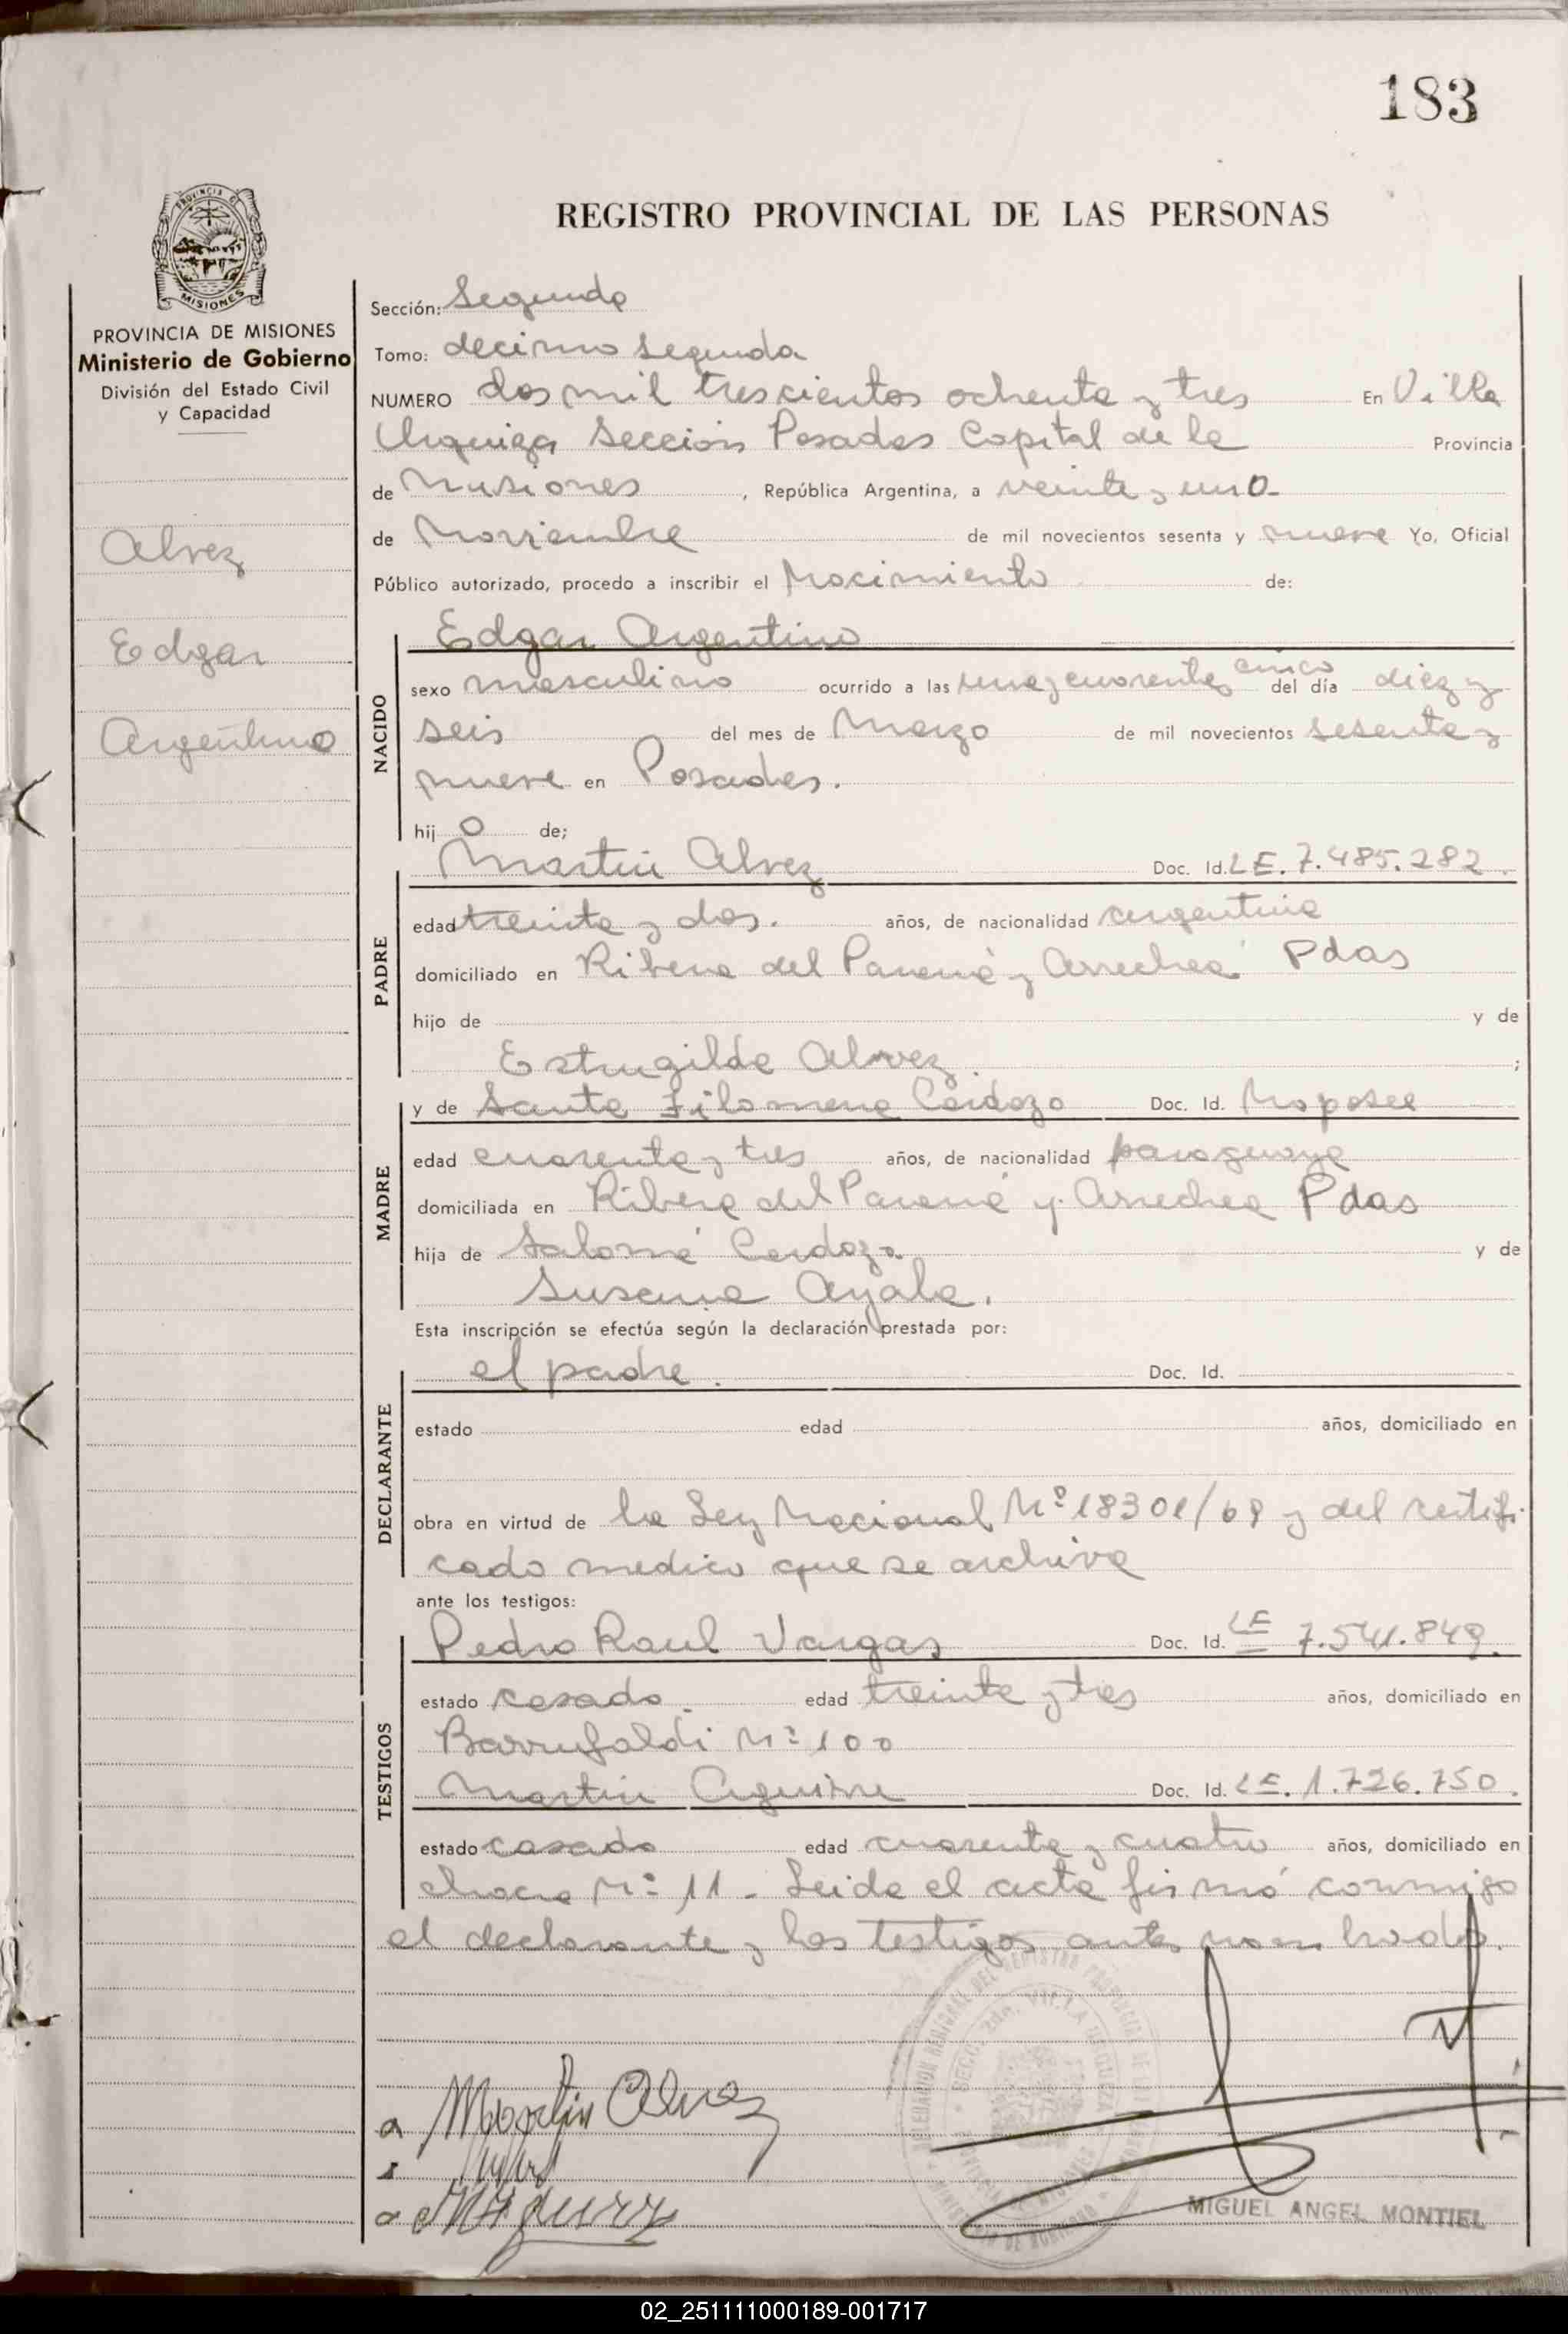 183
PROVINCIA DE
MISIONES
REGISTRO PROVINCIAL DE LAS PERSONAS
PROVINCIA DE MISIONES
Ministerio de Gobierno
División del Estado Civil
y Capacidad
Alvez
Edgar
Argentino
Sección: Segunda
Tomo: decimo segunda
NUMERO dos mil trescientos ochenta y tres En Villa
Urquiza Sección Posadas Capital de la Provincia
de Misiones , República Argentina, a veinte y uno
de Noviembre de mil novecientos sesenta y nueve Yo, Oficial
Público autorizado, procedo a inscribir el Nacimiento de:
NACIDO
Edgar Argentino
sexo masculino ocurrido a las una y cuarenta y cinco del día diez y
seis del mes de Marzo de mil novecientos sesenta y
nueve en Posadas.
hij o de;
PADRE
Martin Alvez Doc. Id. LE. 7.485.282.
edad treinta y dos. años, de nacionalidad argentina
domiciliado en Ribera del Paraná y Arrechea Pdas
hijo de y de
Estrugilda Alvez. ;
MADRE
y de Santa Filomena Cardozo Doc. Id. No posee
edad cuarenta y tres años, de nacionalidad paraguaya
domiciliada en Ribera del Paraná y Arrechea Pdas
hija de Salomé Cardozo y de
Susana Ayala.
Esta inscripción se efectúa según la declaración prestada por:
DECLARANTE
el padre. Doc. Id.
estado edad años, domiciliado en
obra en virtud de la Ley Nacional Nº 18301/69 y del certifi-
cado medico que se archiva
ante los testigos:
TESTIGOS
Pedro Raul Vargas Doc. Id. LE 7.541.849.
estado casado. edad treinta y tres años, domiciliado en
Barrufaldi Nº 100
Martin Aguirre Doc. Id. LE. 1.726.750.
estado casado edad cuarenta y cuatro años, domiciliado en
chacra Nº 11 - Leida el acta firmó conmigo
el declarante y los testigos antes nombrado.
Martin Alvez
MIGUEL ANGEL MONTIEL
02_251111000189-001717